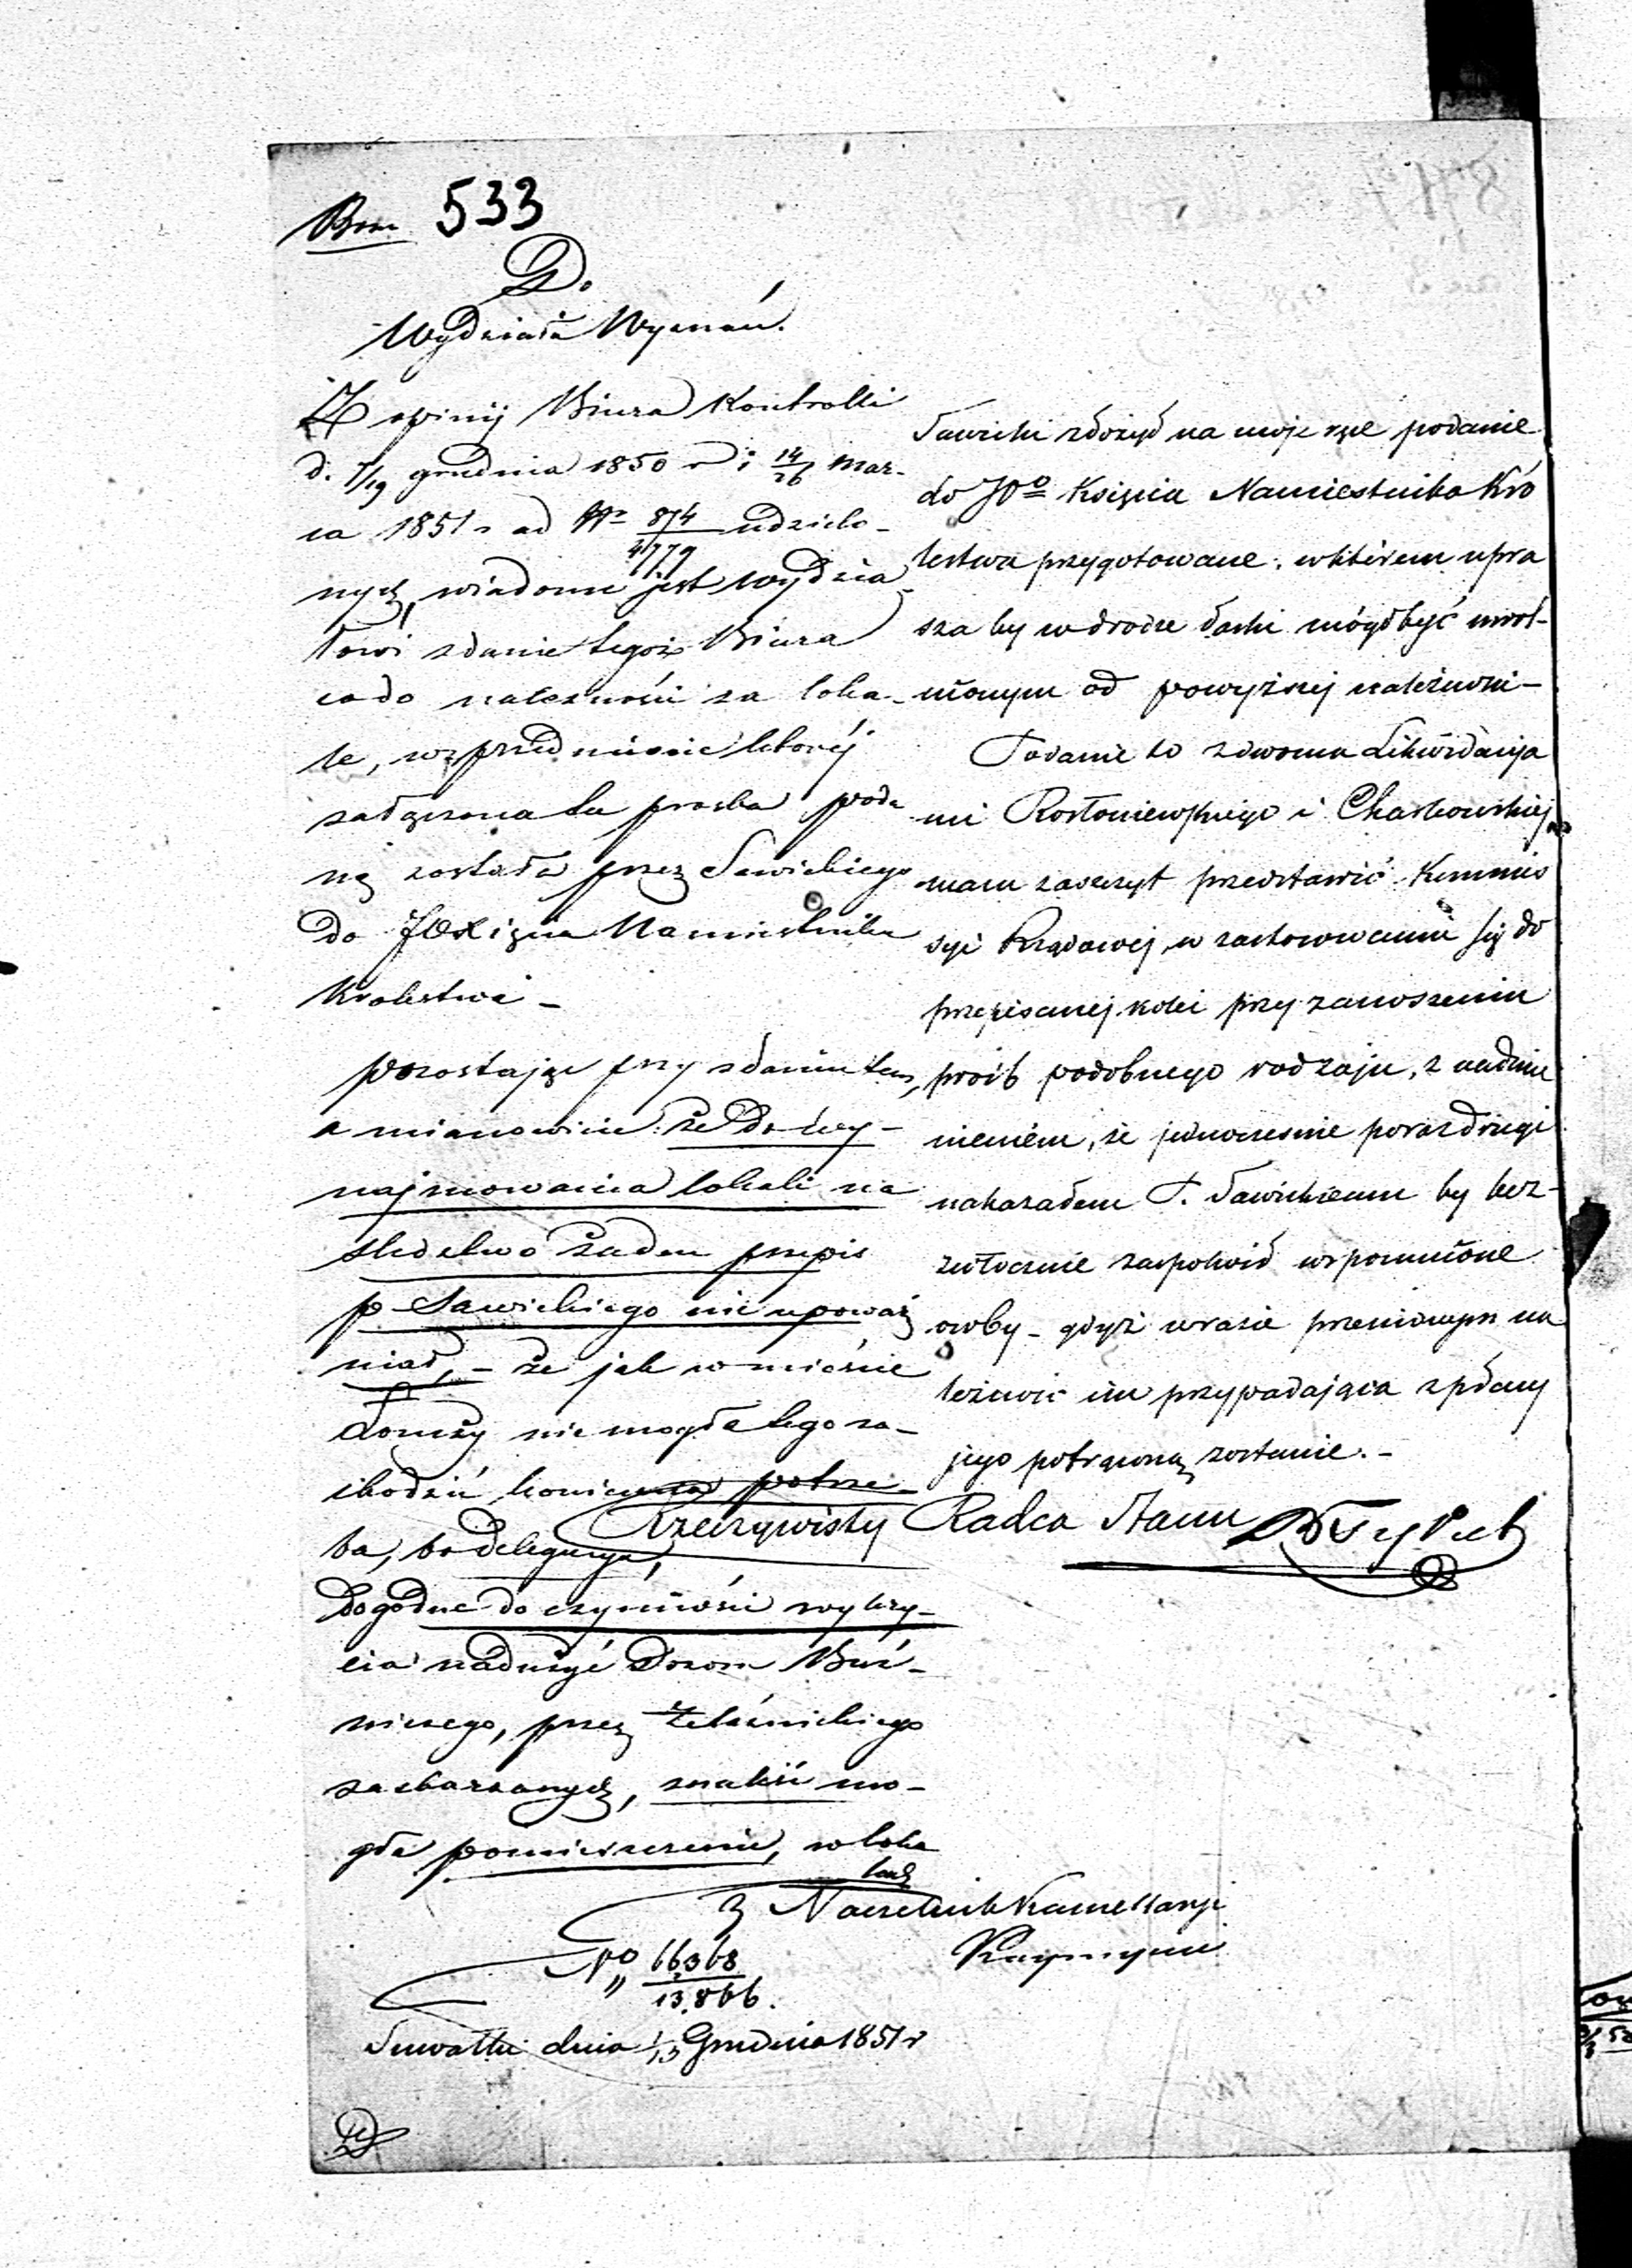 Bm 533
Do
Wydziału Wyznań.
Z opinij Biura Kontrolli
d. 7/19 grudnia 1850 r i 14/26 Mar-
ca 1851 r ad Nr 874/4779 udzielo-
nych, wiadome jest Wydzia
łowi zdanie tegoż Biura
co do należności za loka-
le, w przedmiocie której
załączona tu prośba poda
ną została przez Sawickiego
do JO Xięcia Namiestnika
Królestwa -
Pozostając przy zdaniu tem,
a mianowicie: że do wy-
najmowania lokali na
śledztwo żaden przepis
p Sawickiego nie upoważ
niał, - że jak w mieście
Łomży nie mogła tego za-
chodzić konieczna potrze-
ba, bo delegacya,
dogodne do czynności wykry-
cia nadużyć Dozoru Boż-
niczego, przez Żelaźnickiego
zaskarżonych, znaleść mo-
gła pomieszczenie, w loka
lach
Sawicki złożył na moje ręce podanie
do JOo Księcia Namiestnika Kró
lestwa przygotowane, w którem upra
sza by w drodze łaski mógł być uwol-
nionym od powyższej należności -
Podanie to z dwoma Likwidacyja
mi Rostoniewskiego i Charkowskiej
mam zaszczyt przedstawić Kommis
syi Rządowej, w zastosowaniu się do
przepisanej kolei przy zanoszeniu
prośb podobnego rodzaju, z nadmie
nieniem, że jednocześnie poraz drugi
nakazałem P. Sawickiemu by bez-
zwłocznie zaspokoił wspomnione
osoby - gdyż w razie przeciwnym na
leżność im przypadająca z płacy
jego potrąconą zostanie. -
Rzeczywisty Radca Stanu
z Naczelnik Kancellaryi
No 66,368
" 13,866.
Suwałki dnia 1/13 Grudnia 1851 r